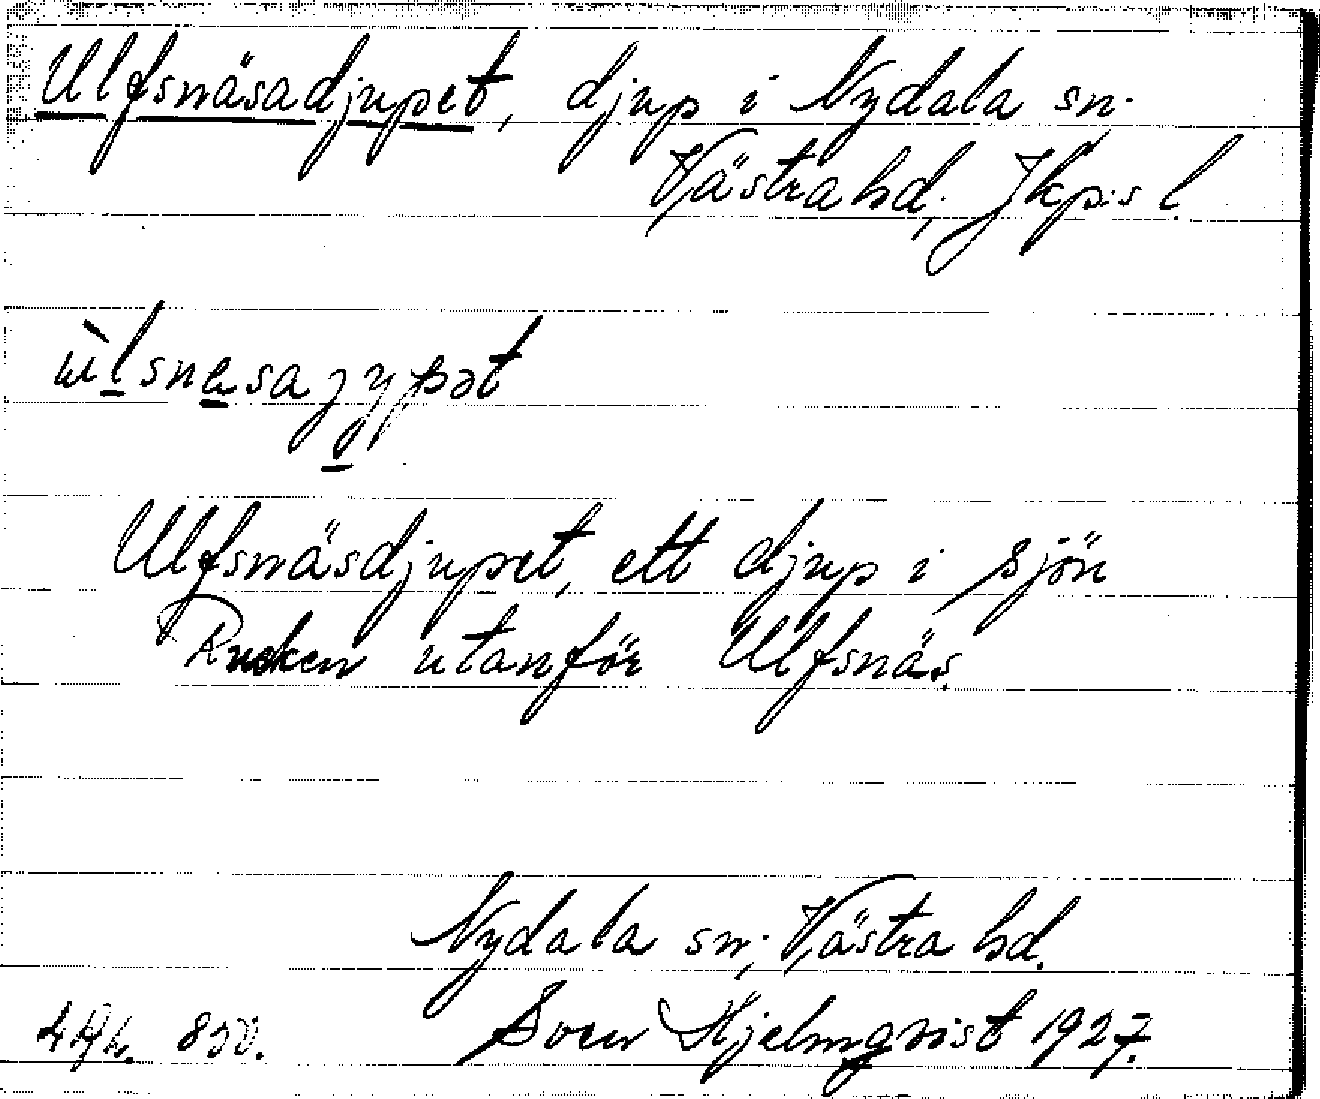 Ulfsnäsadjupet, djup i Nydala sn.
Västra hd; Jkp:s l.
Ulfsnäsdjupet, ett djup i sjön
Rusken utanför Ulfsnäs.
Nydala sn; Västra hd.
850. Sven Hjelmqvist 1927.